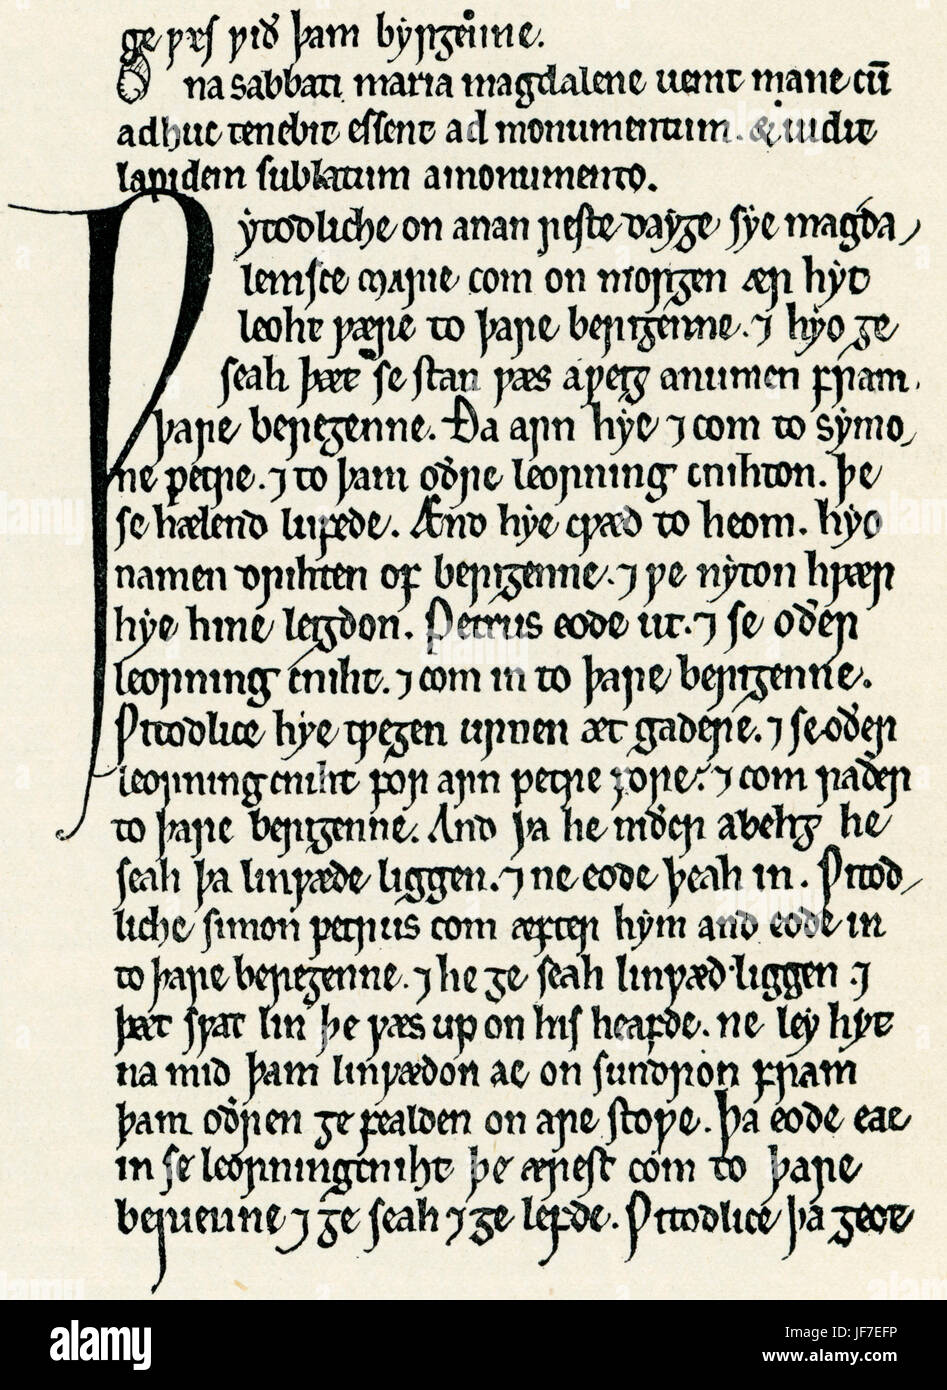 ge ƿæs ƿið þam byrgenne.
Una sabbati maria magdalene uenit mane cū
adhuc tenebre essent ad monumentum. & uidit
lapidem sublatum amonumento.
Ƿytodliche on anan reste dayge sye magda
lenisce marie com on morgen ær hyt
leoht ƿære to þare berigenne. ⁊ hyo ge
seah þæt se stan ƿæs aƿeig anumen fram
þare beregenne. Ða arn hye ⁊ com to symo
ne petre. ⁊ to þam oðre leorning cnihton. þe
se hælend lufede. Ænd hye cƿæð to heom. hyo
namen drihten of berigenne. ⁊ ƿe nyton hƿær
hye hine leigdon. Petrus eode ut. ⁊ se oðer
leorning cniht. ⁊ com in to þare berigenne.
Ƿitodlice hye tƿegen urnen æt gadere. ⁊ se oðer
leorning cniht for arn petre fore. ⁊ com raðer
to þare berigenne. And þa he niðer abehg he
seah þa linƿæde liggen. ⁊ ne eode þeah in. Ƿitod
liche simon petrus com æfter hym and eode in
to þare beregenne. ⁊ he ge seah linƿæd liggen. ⁊
þæt sƿat lin þe ƿæs up on his heafde. ne ley hyt
na mid þam linƿædon ac on sundron fram
þam oðren ge fealden on are stoƿe. Þa eode eac
in se leorningcniht þe ærest com to þare
berienne ⁊ ge seah ⁊ ge lefde. Ƿitodlice þa geot
alamy
Image ID: JF7EFP
www.alamy.com